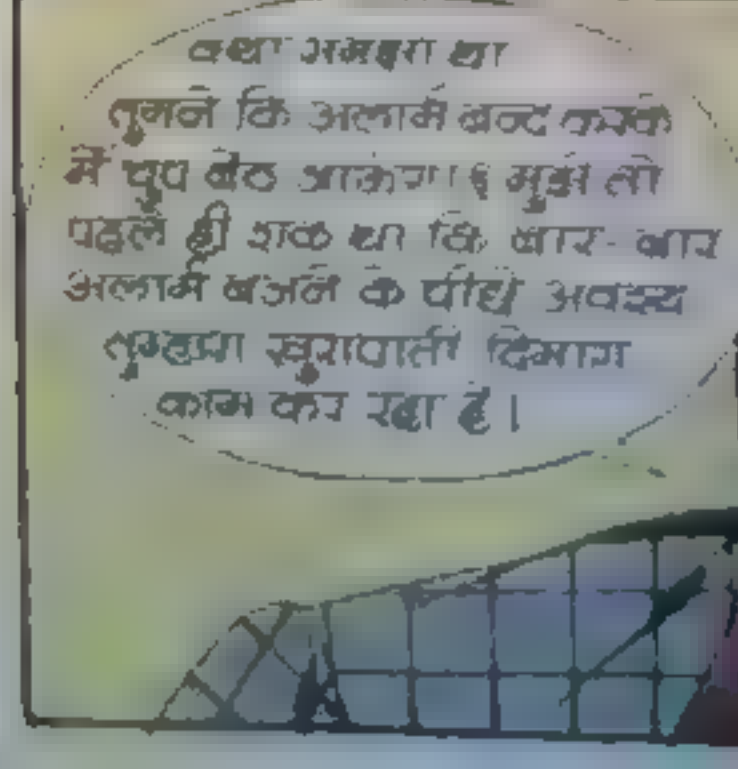 क्या समझा था
तुमने कि अलार्म बन्द करके
में चुप बैठ जाऊंगा। मुझे तो
पहले ही शक था कि बार-बार
अलार्म बजने के पीछे अवश्य
तुम्हारा खुरापाती दिमाग
काम कर रहा है।